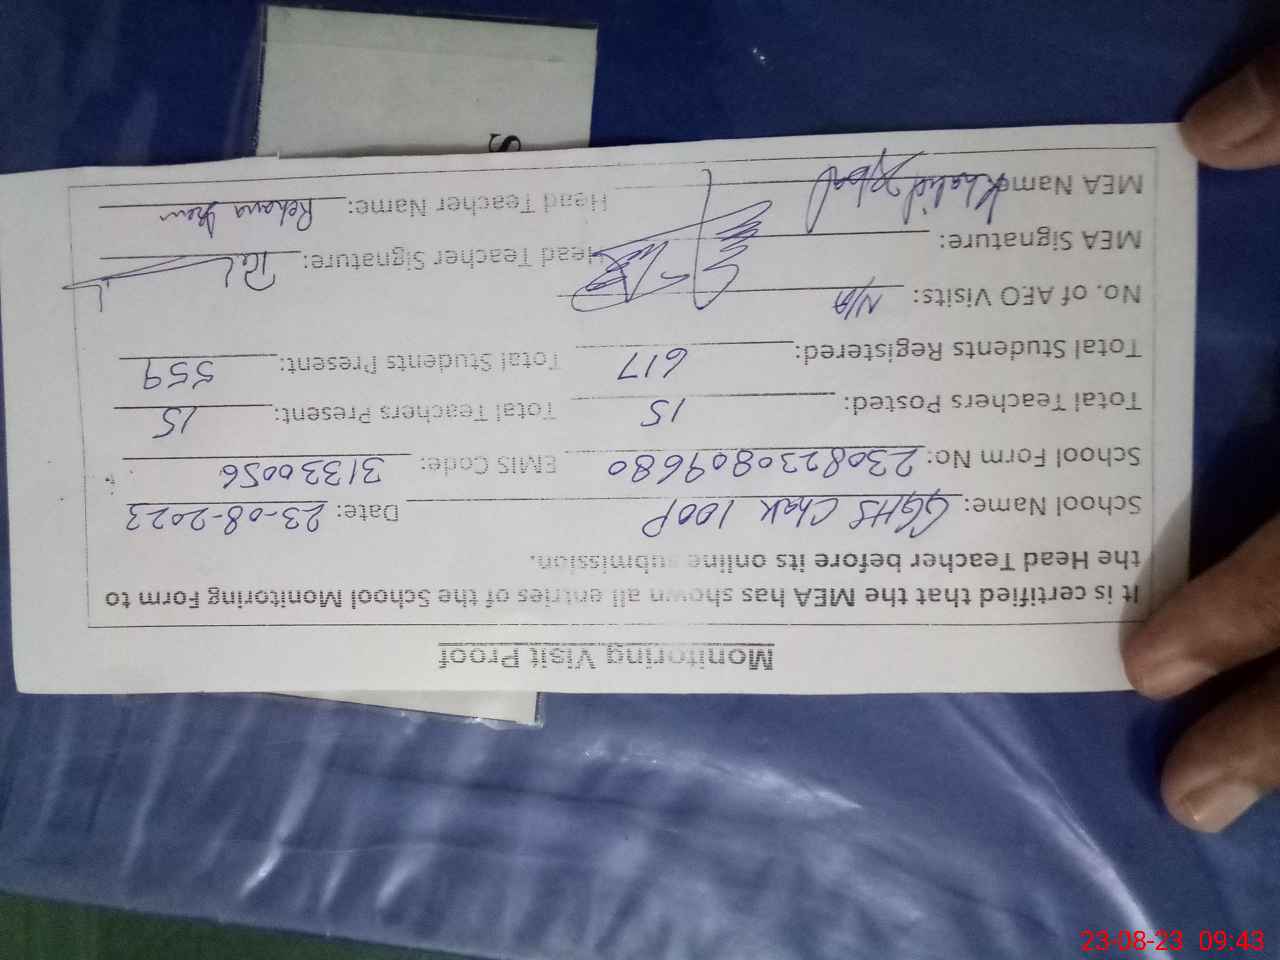 Monitoring Visit Proof
It is certified that the MEA has shown all entries of the School Monitoring Form to
the Head Teacher before its online submission.
School Name: GGHS Chak 100P Date: 23-08-2023
School Form No: 2308230809680 EMIS Code: 31330056
Total Teachers Posted: 15 Total Teachers Present: 15
Total Students Registered: 617 Total Students Present: 559
No. of AEO Visits: N/A
MEA Signature: Head Teacher Signature:
MEA Name: Khalid Iqbal Head Teacher Name: Rehana
S
23-08-23 09:43